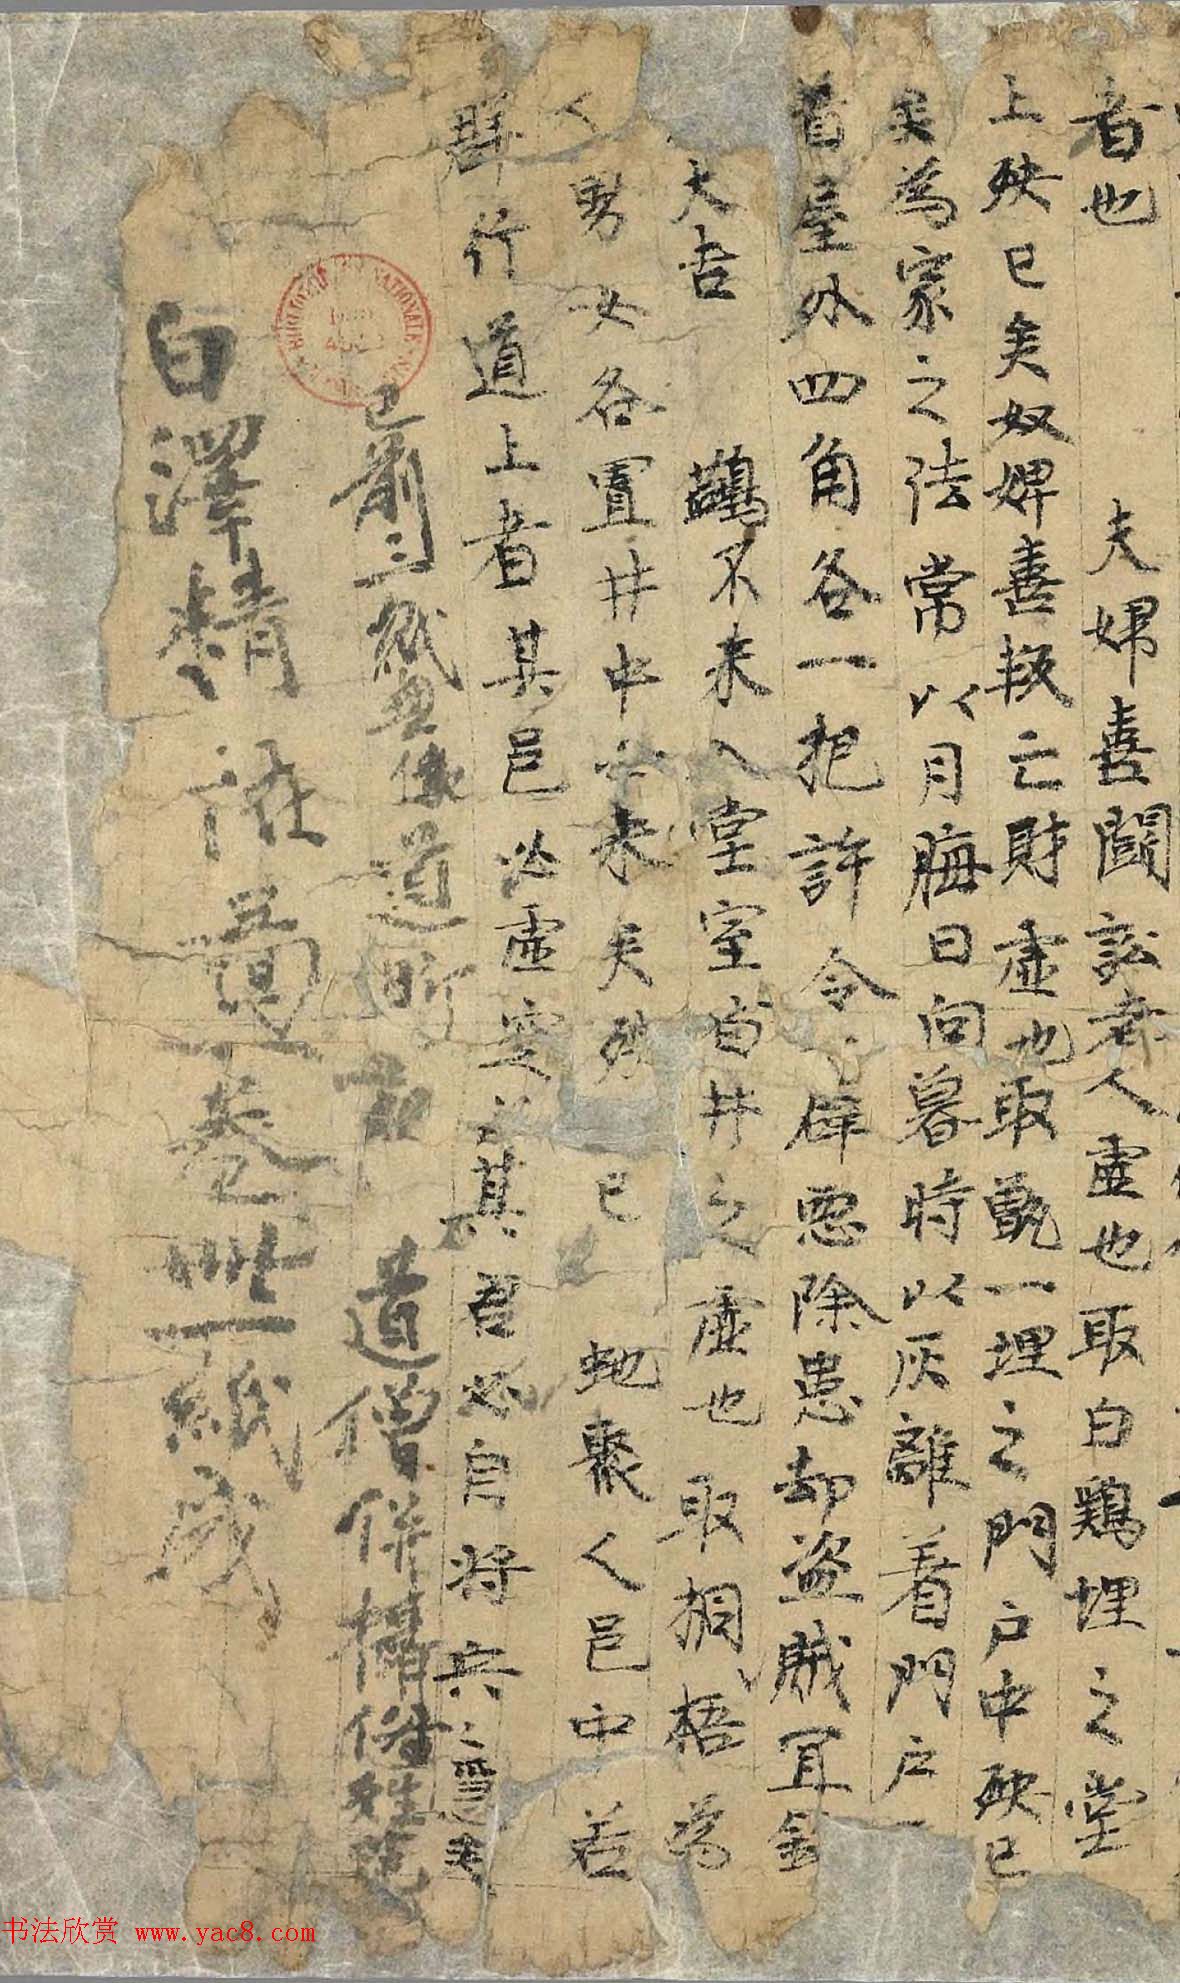 者也　夫婦喜鬪訟者人虛也取白鷄埋之堂
上殃已矣奴婢善叛亡財虛也取甑一埋之門戶中殃已
矣為家之法常以月晦日向暮時以灰離着門戶
首屋外四角各一把許令辟惡除患却盜賊宜
大吉　鵲不來入堂室者井之虛也取桐梧為
男女各置井中必來矣殃已　蛇聚人邑中若
群行道上者其邑必虛空其君必自將兵
已前三紙無像道昕記道僧併攝俗姓范
白澤精恠圖一卷卌一紙成
BIBLIOTHEQUE NATIONALE
书法欣赏 www.yac8.com